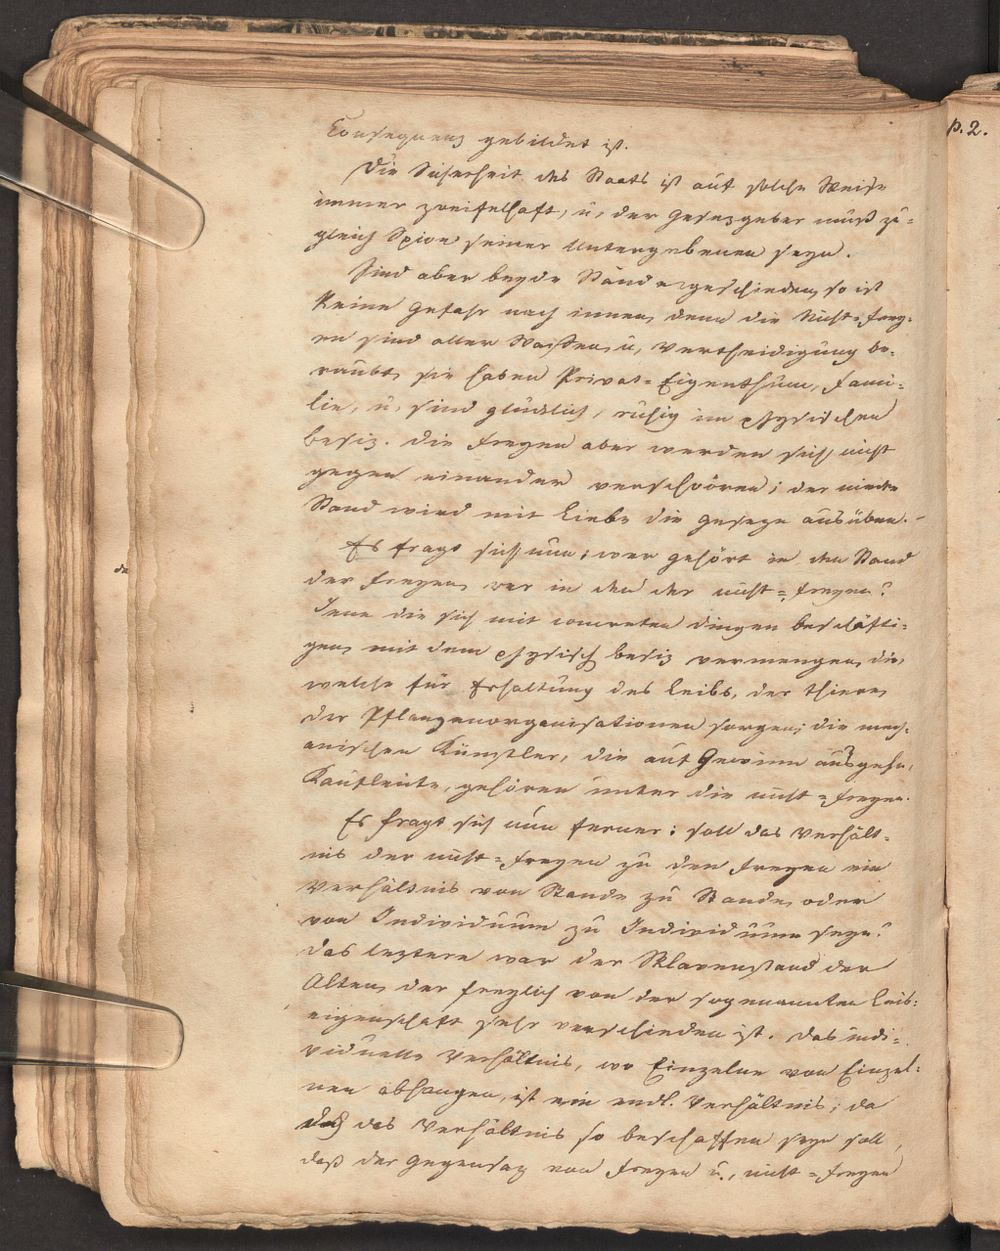 Consequenz gebildet ist.
p. 2.
Die Sicherheit des Staats ist auf solche Weise
immer zweifelhaft, u, der Gesezgeber muß zu=
gleich Spion seiner Untergebenen seyn.
Sind aber beyde Stände geschieden, so ist
keine Gefahr nach innen, denn die Nicht=frey=
en sind aller Waffen, u, Vertheidigung be=
raubt, sie haben Privat=Eigenthum, Fami=
lie, u, sind glücklich, ruhig im physischen
besiz. Die Freyen aber werden sich nicht
gegen einander verschwören; der
Stand wird mit Liebe die Geseze ausüben. –
Es fragt sich nun; wer gehört in den Stand
der Freyen, wer in den der nicht=freyen?
de
Jene die sich mit concreten dingen beschäfti=
gen, mit dem physisch besiz vermengen, die,
welche für Erhaltung des Leibs, der Thiere,
der Pflanzenorganisationen sorgen; die mech=
anischen Künstler, die auf Gewinn ausgehn,
Kaufleute, gehören unter die nicht=freyen.
Es fragt sich nun ferner: soll das Verhält=
nis der nicht=freyen zu den Freyen ein
Verhältnis von Stande zu Stande, oder
von Individuum zu Individuum seyn?
das leztere war der Sklavenstand der
Alten, der freylich von der sogenannten Leib=
eigenschaft sehr verschieden ist. Das indi=
viduelle Verhältnis, wo Einzelne von Einzel=
nen abhangen, ist ein endl. Verhältnis; da
das Verhältnis so beschaffen seyn soll,
daß der Gegensaz von Freyen u., nicht=freyen